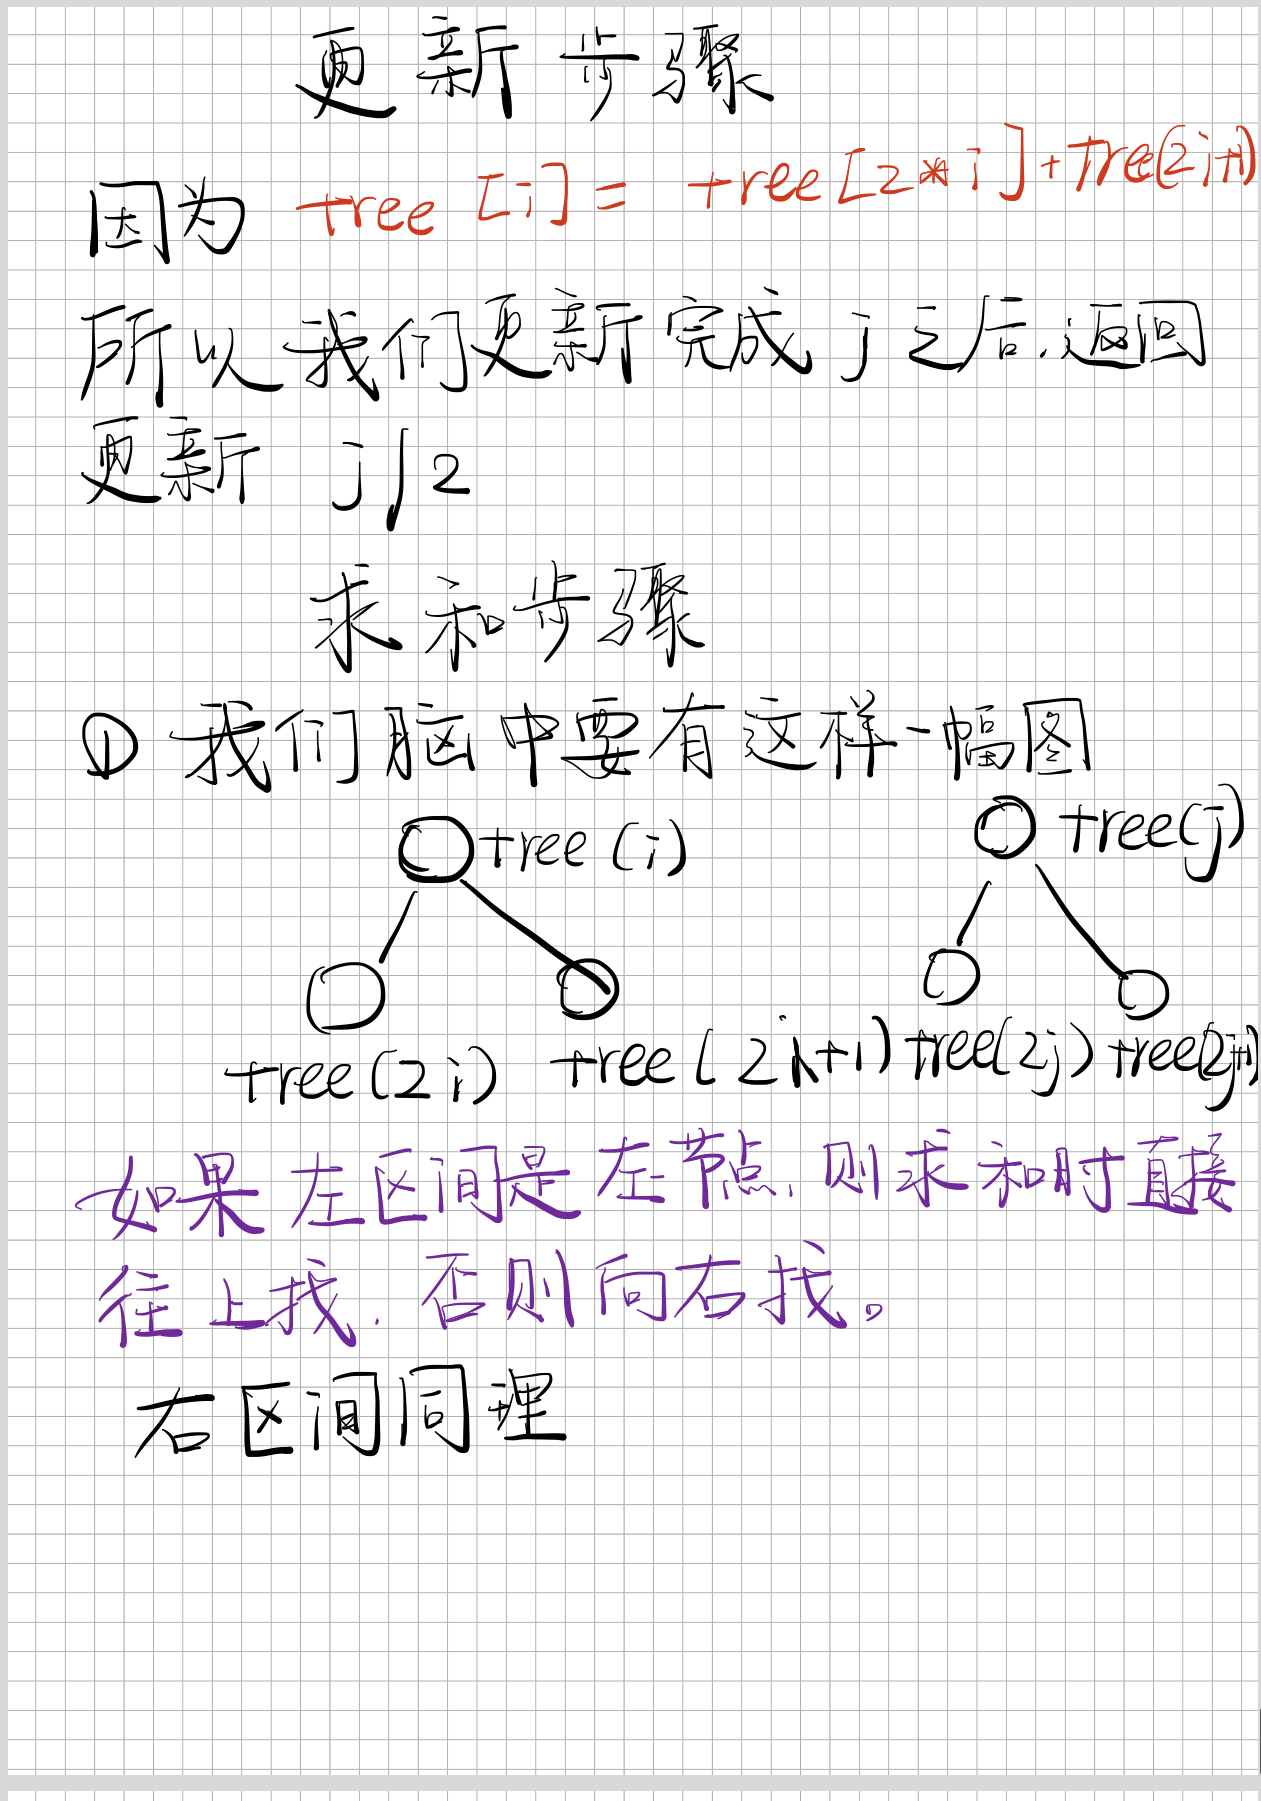 更新步骤
因为 tree[i] = tree[2*i]+tree(2i+1)
所以我们更新完成j之后,返回
更新 j/2
求和步骤
① 我们脑中要有这样一幅图
tree(i) tree(j)
tree(2i) tree(2i+1) tree(2j) tree(2j+1)
如果左区间是左节点,则求和时直接
往上找,否则向右找。
右区间同理